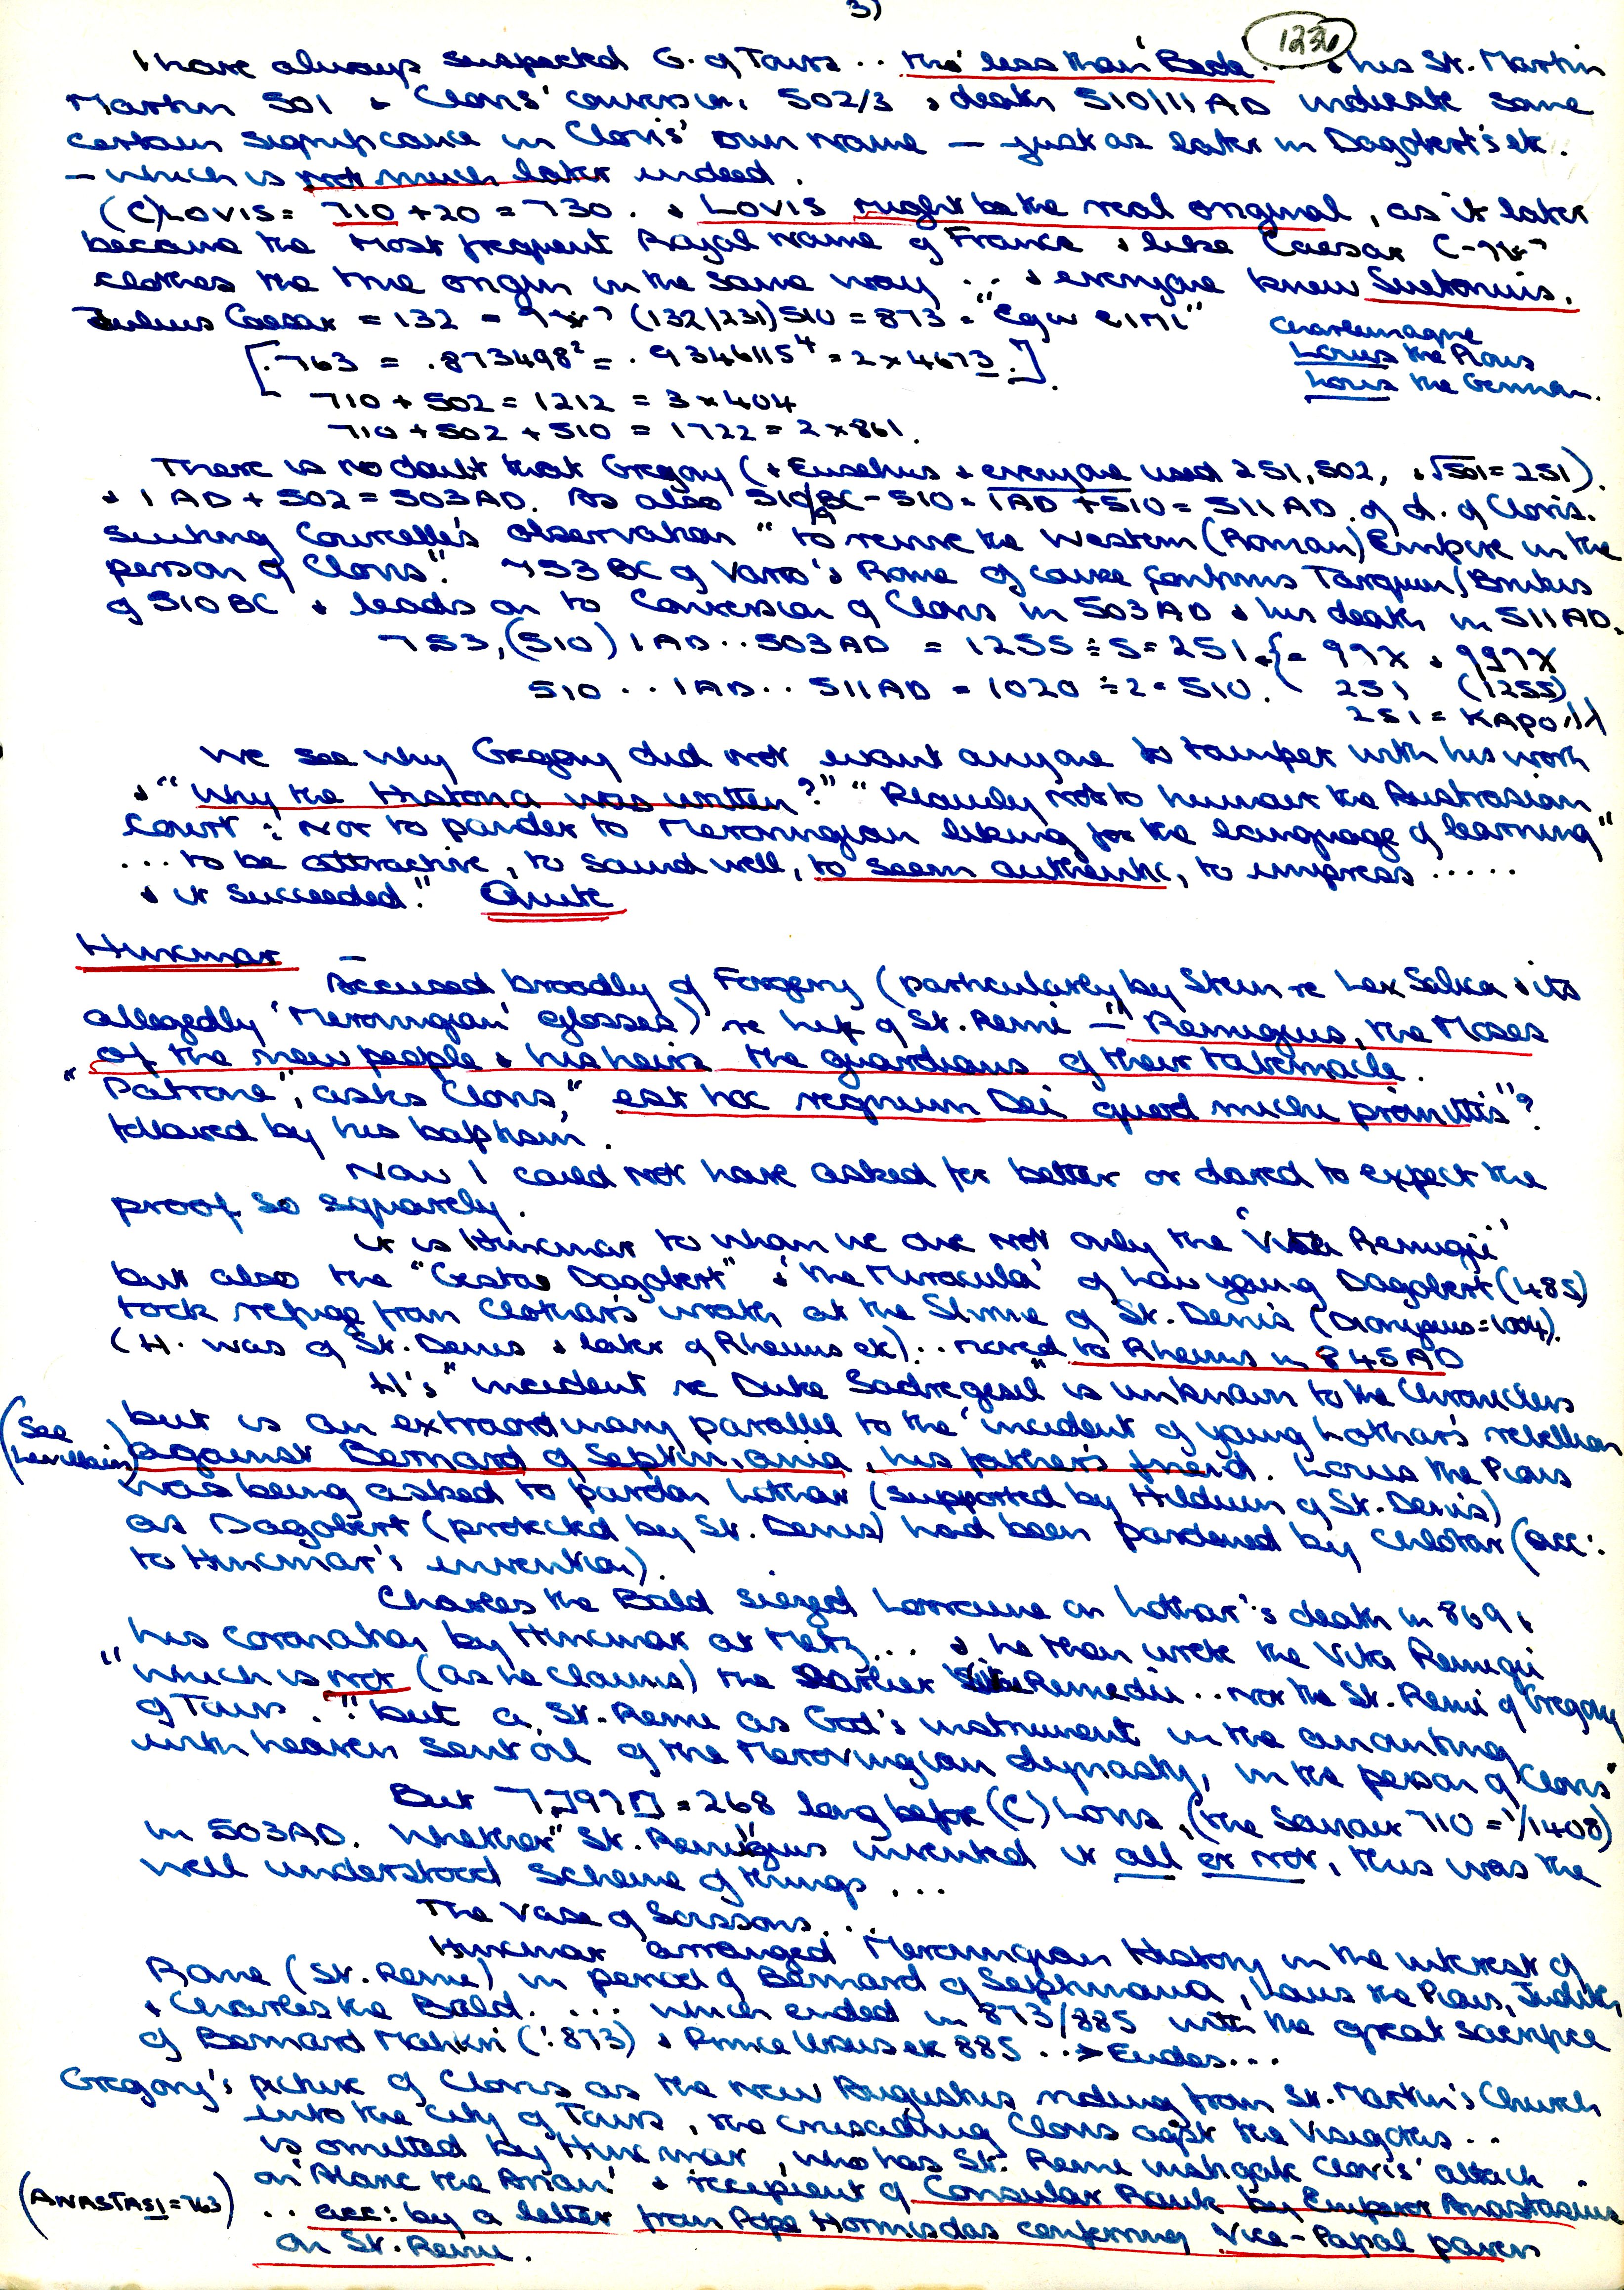 3)
1236
I have always suspected G. of Tours .. tho' less than Bede ... & his St. Martin
Martin 501 & Clovis' conversion 502/3 & death 510/11 AD indicate some
certain significance in Clovis' own name — just as later in Dagobert's etc.
— which is not much later indeed.
(C)LOVIS = 710 + 20 = 730. & LOVIS might be the real original, as it later
became the most frequent Royal name of France & like Caesar
clothes the true origin in the same way ... & everyone knew Suetonius.
Julius Caesar = 132 = (132/231) 510 = 873 =
Charlemagne
Louis the Pious
Louis the German.
[.763 = .873498² = .9346115⁴ = 2 x 4673.]
710 + 502 = 1212 = 3 x 404
710 + 502 + 510 = 1722 = 2 x 861.
There is no doubt that Gregory (& Eusebius & everyone used 251, 502, & √501 = 251).
& 1 AD + 502 = 503 AD. As also 510 BC - 510 = 1 AD + 510 = 511 AD. of d. of Clovis.
suiting Courcelle's observation "to revive the Western (Roman) Empire in the
person of Clovis". 753 BC of Varro's Rome of course confirms Tarquin/Brutus
of 510 BC & leads on to Conversion of Clovis in 503 AD & his death in 511 AD.
753, (510) 1 AD .. 503 AD = 1255 ÷ 5 = 251
510 .. 1 AD .. 511 AD = 1020 ÷ 2 = 510. 251 (1255)
251 =
We see why Gregory did not want anyone to tamper with his work
& "Why the Historia was written?" "Plainly not to humour the Austrasian
Court: Nor to pander to Merovingian liking for the language of learning"
... to be attractive, to sound well, to seem authentic, to impress .....
& it succeeded." Quite
Hincmar —
Accused broadly of Forgery (particularly by Stein re Lex Salica & its
allegedly 'Merovingian' glosses) re life of St. Remi — "Remigius, the Moses
of the new people & his heirs the guardians of their tabernacle.
"Patrone", asks Clovis, "est hoc regnum Dei quod mihi promittis"?
followed by his baptism.
Now I could not have asked for better or dared to expect the
proof so squarely.
It is Hincmar to whom we owe not only the 'Vita Remigii'
but also the "Gesta Dagobert" & 'the Miracula' of how young Dagobert (485)
took refuge from Clothar's wrath at the Shrine of St. Denis (Dionysius = 1004).
(H. was of St. Denis & later of Rheims etc) .. moved to Rheims in 845 AD
H's "incident re Duke Sadregesel" is unknown to the Chroniclers
but is an extraordinary parallel to the 'incident of young Lothar's rebellion
(See Levillain)
against Bernard of Septimania, his father's friend. Louis the Pious
was being asked to pardon Lothar (supported by Hilduin of St. Denis)
as Dagobert (protected by St. Denis) had been pardoned by Chlotar (acc:
to Hincmar's invention).
Charles the Bald siezed Lorraine on Lothar's death in 869 &
his coronation by Hincmar at Metz ... & he then wrote the Vita Remigii
"which is not (as he claims) the earlier Vita Remedii .. nor the St. Remi of Gregory
of Tours." "but a St. Remi as God's instrument in the anointing
with heaven sent oil of the Merovingian dynasty, in the person of Clovis"
But = 268 long before (C)Lovis, (the Saviour 710 = 1/1408)
in 503 AD. Whether "St. Remigius invented it all or not, this was the
well understood scheme of things ...
The Vase of Soissons ...
Hincmar arranged Merovingian History in the interest of
Rome (St. Remi) in period of Bernard of Septimania, Louis the Pious, Judith
& Charles the Bald. ... which ended in 873/885 with the great sacrifice
of Bernard (:873) & Prince Ursus etc 885 ..> Eudes ...
Gregory's picture of Clovis as the new Augustus riding from St. Martin's Church
into the city of Tours, the crusading Clovis agst the Visigoths ..
is omitted by Hincmar, who has St. Remi instigate Clovis' attack
on 'Alaric the Arian' & recipient of Consular Rank by Emperor Anastasius
(ANASTASI = 763)
.. acc: by a letter from Pope Hormisdas conferring Vice-Papal powers
on St. Remi.